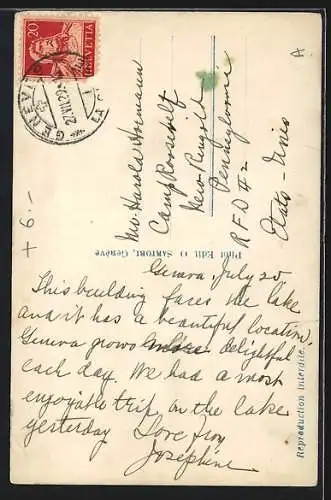 20
HELVETIA
GENÈVE
Mr. Harold Hormann
Camp Roosevelt
New Ringgold
Pennsylvania
R.F.D #2
Etats-Unis
Phot. Edit. O. SARTORI, Genève
Geneva, July 20,
This building faces the lake
and it has a beautiful location.
Geneva grows more delightful
each day. We had a most
enjoyable trip on the lake
yesterday Love from
Josephine
Reproduction Interdite
+ 6:-